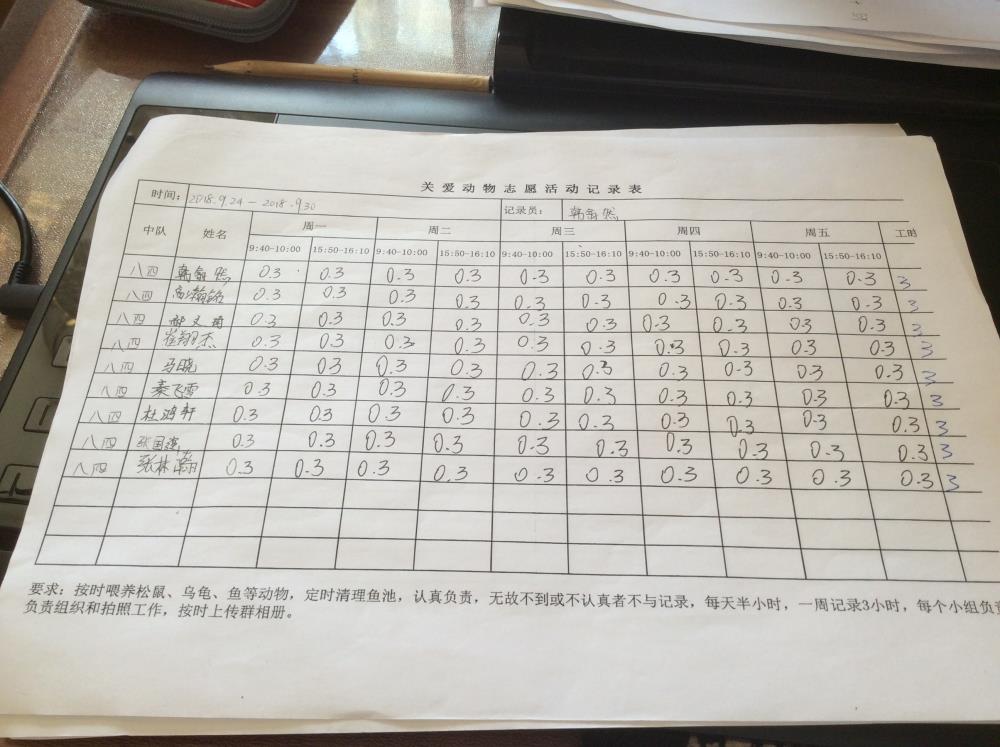 关爱动物志愿活动记录表
时间： 2018.9.24 - 2018.9.30 记录员：
中队 姓名 周一 周二 周三 周四 周五
9:40-10:00 15:50-16:10 9:40-10:00 15:50-16:10 9:40-10:00 15:50-16:10 9:40-10:00 15:50-16:10 9:40-10:00 15:50-16:10
八四 0.3 0.3 0.3 0.3 0.3 0.3 0.3 0.3 0.3 0.3 3
八四 0.3 0.3 0.3 0.3 0.3 0.3 0.3 0.3 0.3 0.3 3
八四 0.3 0.3 0.3 0.3 0.3 0.3 0.3 0.3 0.3 0.3 3
八四 崔翔杰 0.3 0.3 0.3 0.3 0.3 0.3 0.3 0.3 0.3 0.3 3
八四 马晓 0.3 0.3 0.3 0.3 0.3 0.3 0.3 0.3 0.3 0.3 3
八四 秦飞雪 0.3 0.3 0.3 0.3 0.3 0.3 0.3 0.3 0.3 0.3 3
八四 杜鸿轩 0.3 0.3 0.3 0.3 0.3 0.3 0.3 0.3 0.3 0.3 3
八四 0.3 0.3 0.3 0.3 0.3 0.3 0.3 0.3 0.3 0.3 3
八四 张林瀚 0.3 0.3 0.3 0.3 0.3 0.3 0.3 0.3 0.3 0.3 3
要求：按时喂养松鼠、乌龟、鱼等动物，定时清理鱼池，认真负责，无故不到或不认真者不与记录，每天半小时，一周记录3小时，每个小组负责
负责组织和拍照工作，按时上传群相册。